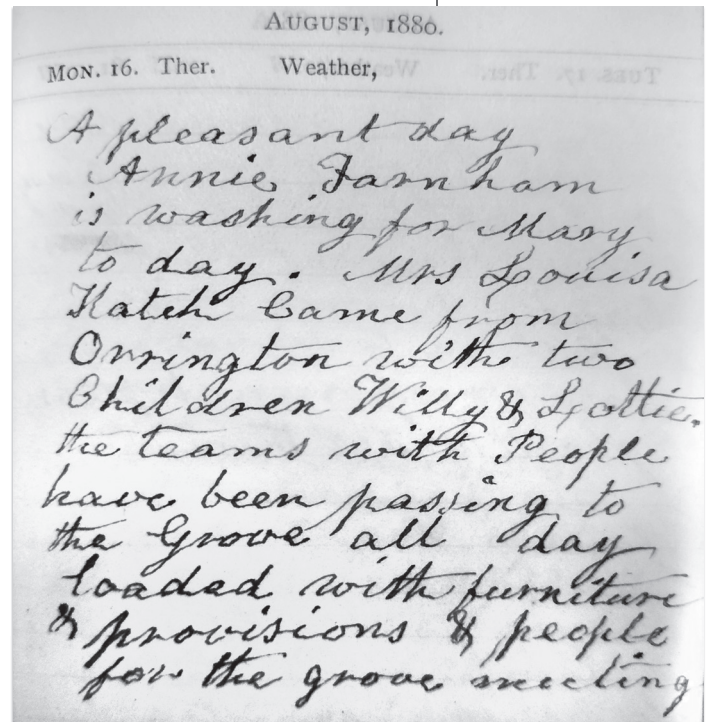 AUGUST, 1880.
MON. 16. Ther. Weather,
A pleasant day
Annie Farnham
is washing for Mary
to day. Mrs Louisa
Hatch Came from
Orrington with two
Children Willy & Lottie.
the teams with People
have been passing to
the Grove all day
loaded with furniture
& provisions & people
for the grove meeting